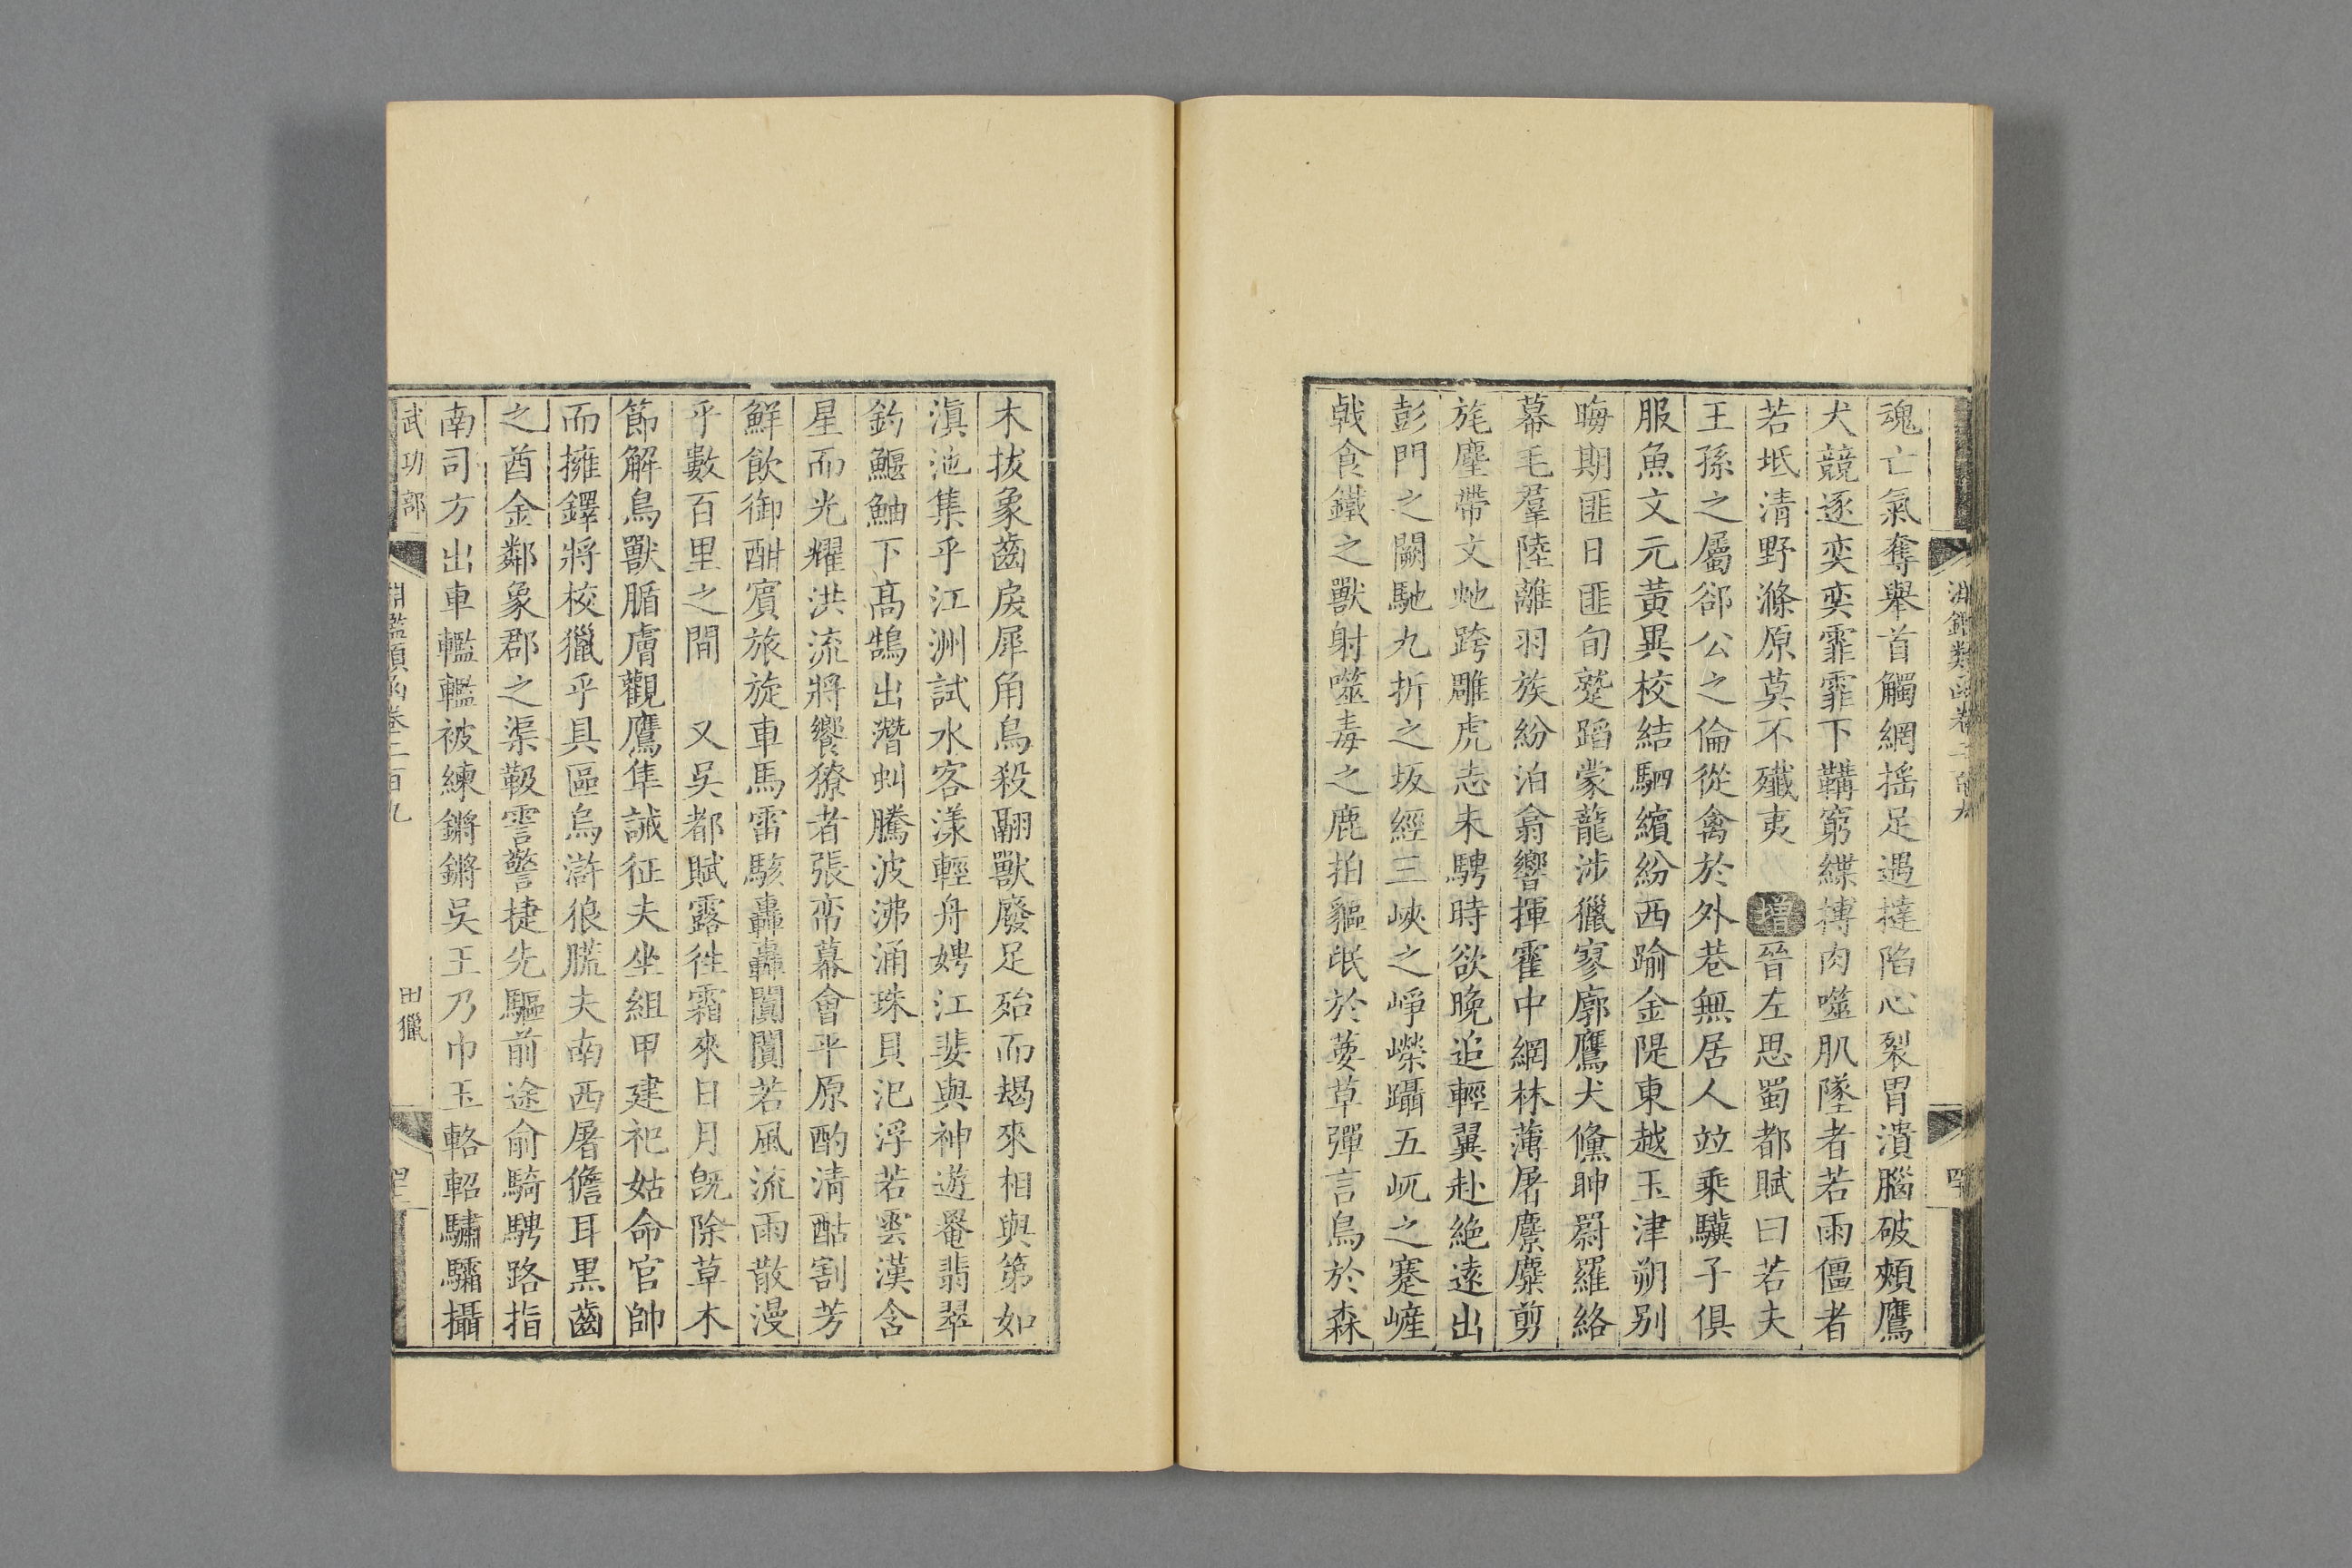 淵鑑類函卷二百九
魂亡氣奪舉首觸網揺足遇撻陷心裂胃潰腦破頰鷹
犬競逐奕奕霏霏下韝窮緤搏肉噬肌墜者若雨僵者
若坻清野滌原莫不殲夷 增晉左思蜀都賦曰若夫
王孫之屬郤公之倫從禽於外巷無居人竝乘驥子俱
服魚文元黃異校結駟繽紛西踰金隄東越玉津朔別
晦期匪日匪旬蹵蹈蒙蘢涉獵寥廓鷹犬儵眒罻羅絡
幕毛羣陸離羽族紛泊翕響揮霍中網林薄屠麖麋剪
旄麈帶文虵跨雕虎志未騁時欲晚追輕翼赴絕遠出
彭門之闕馳九折之坂經三峽之崢嶸躡五屼之蹇嵼
戟食鐵之獸射噬毒之鹿拍貙氓於葽草彈言鳥於森
木拔象齒戾犀角鳥殺翮獸廢足殆而朅來相與第如
滇池集乎江洲試水客漾輕舟娉江婓與神遊罨翡翠
釣鰋鮋下高鵠出潛虯騰波沸涌珠貝汜浮若雲漢含
星而光耀洪流將饗獠者張帟幕會平原酌清酤割芳
鮮飲御酣賔旅旋車馬雷駭轟轟闐闐若風流雨散漫
乎數百里之間 又吳都賦露徃霜來日月旣除草木
節解鳥獸腯膚觀鷹隼誡征夫坐組甲建祀姑命官帥
而擁鐸將校獵乎具區烏滸狼䑃夫南西屠儋耳黑齒
之酋金鄰象郡之渠䩳霅警捷先驅前途俞騎騁路指
南司方出車轞轞被練鏘鏘吳王乃巾玉輅軺驌驦攝
武功部
淵鑑類函卷二百九
田獵